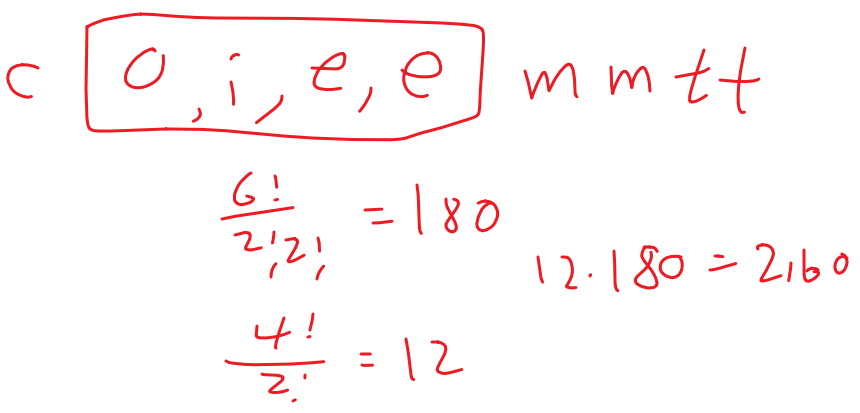 c o, i, e, e m m t t
6!/2!2! = 180
12. 180 = 2160
4!/2! = 12